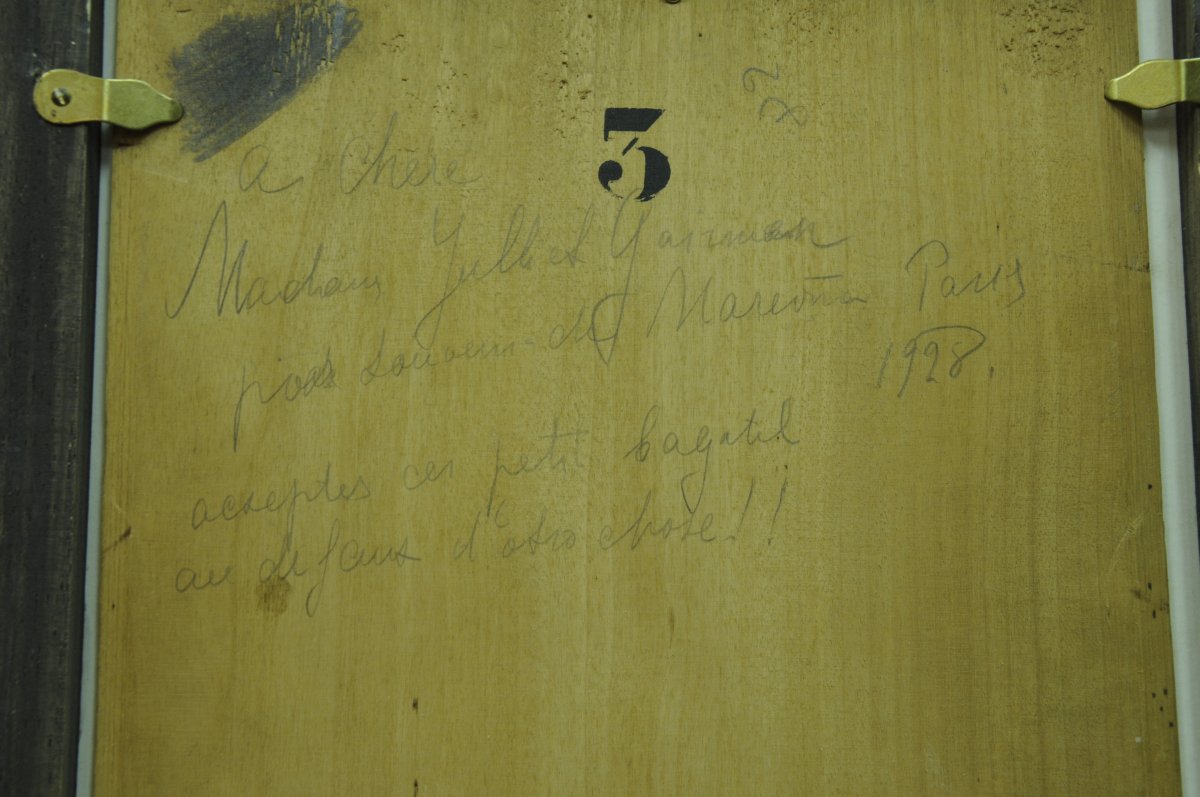 3
a chère
Madham Juliet
pour souvenir de Marevna Paris
1928.
acseptes ces petit bagatel
au defaut d'otro chose!!